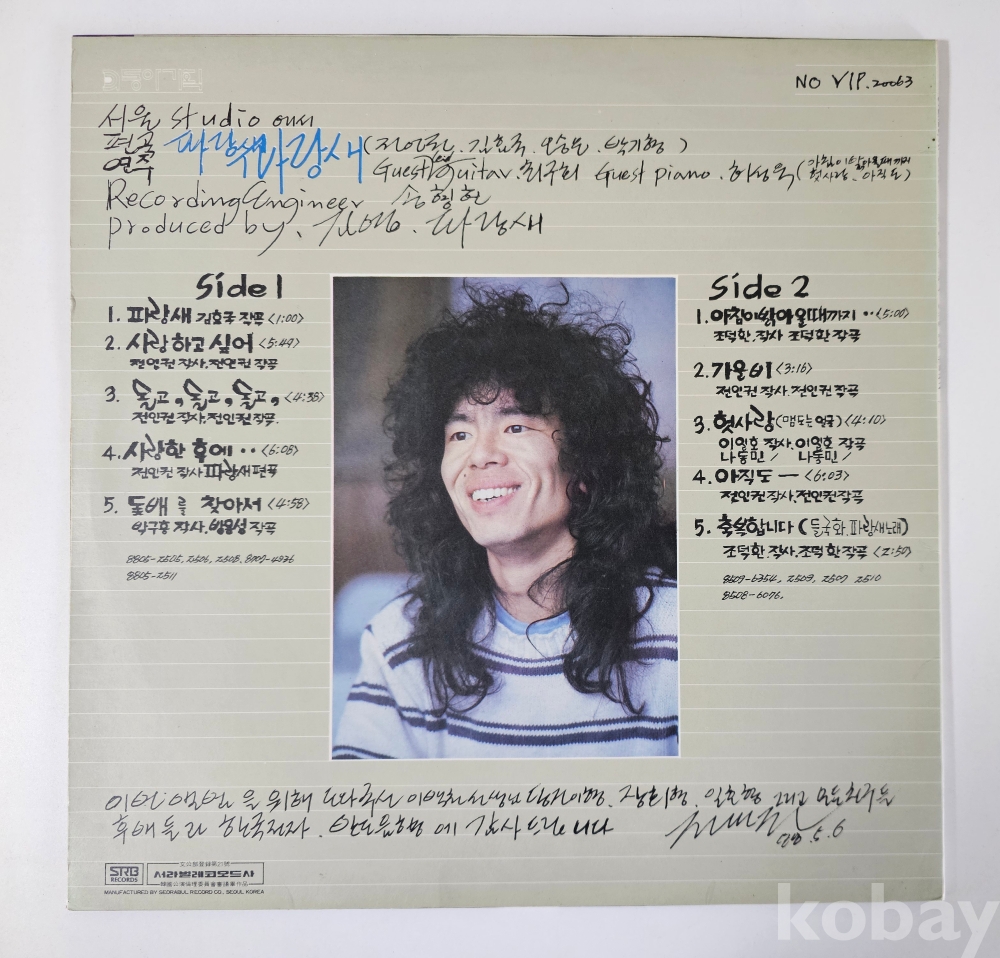 동아기획
NO VIP. 20063
서울 Studio 에서
편곡
연주 파랑새 파랑새 (전인권. 김효국. 오승은. 박기형)
Guest Guitar. 최구희 Guest piano. 하성욱 (아침이 밝아올때까지
헛사랑. 아직도)
Recording Engineer 송형헌
produced by. 김영. 파랑새
Side 1
1. 파랑새 김효국 작곡 <1:00>
2. 사랑하고 싶어 <5:49>
전인권 작사. 전인권 작곡
3. 돌고, 돌고, 돌고, <4:38>
전인권 작사. 전인권 작곡.
4. 사랑한 후에 ·· <6:08>
전인권 작사 파랑새 편곡
5. 돛배를 찾아서 <4:58>
박구홍 작사. 방윤성 작곡
8805-2505, 2506, 2508, 8707-4936
8805-2511
Side 2
1. 아침이 밝아올때까지 ·· <5:00>
조덕환. 작사 조덕환. 작곡
2. 가을비 <3:16>
전인권 작사. 전인권 작곡
3. 헛사랑 (맴도는 얼굴) <4:10>
이영호 작사. 이영호 작곡
나동민 〃 나동민 〃
4. 아직도 — <6:03>
전인권 작사. 전인권 작곡
5. 축복합니다 (들국화. 파랑새 노래)
조덕환. 작사. 조덕환 작곡 <2:50>
8509-6354, 2509, 2507 2510
8508-6076,
이번 앨범을 위해 도와주신 이백천 선생님 그리고 모든 친구들
후배들과 한국전자. 에 감사드립니다
88. 5. 6
SRB RECORDS
文公部登録第21號
서라벌레코오드사
韓國公演倫理委員會審議畢作品
MANUFACTURED BY SEORABUL RECORD CO., SEOUL KOREA
kobay